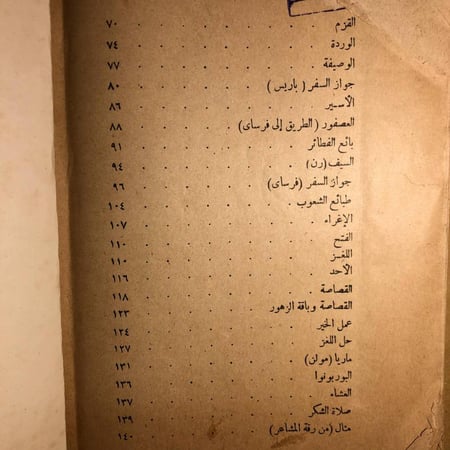 القزم ٧٠
الوردة ٧٤
الوصيفة ٧٧
جواز السفر (باريس) ٨٠
الأسير ٨٦
العصفور (الطريق إلى فرساى) ٨٨
بائع الفطائر ٩١
السيف (رن) ٩٤
جواز السفر (فرساى) ٩٦
طبائع الشعوب ١٠٤
الإغراء ١٠٧
الفتح ١١٠
اللغز ١١٠
الأحد ١١٦
القصاصة ١١٨
القصاصة وباقة الزهور ١٢٣
عمل الخير ١٢٤
حل اللغز ١٢٧
ماريا (مولن) ١٣١
البوربونوا ١٣٦
العشاء ١٣٧
صلاة الشكر ١٣٩
مثال (من رقة المشاعر) ١٤٠